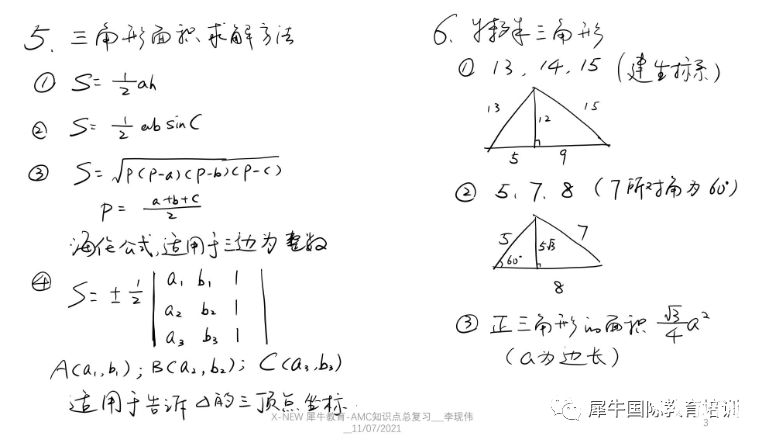 5、三角形面积求解方法
① S= 1/2 ah
② S= 1/2 ab sinC
③ S=√P(P-a)(P-b)(P-c)
P= a+b+c/2
海伦公式,适用于三边为整数
④ S=± 1/2 | a₁ b₁ 1 |
| a₂ b₂ 1 |
| a₃ b₃ 1 |
A(a₁,b₁); B(a₂,b₂); C(a₃,b₃)
适用于告诉△的三顶点坐标.
6、特殊三角形
① 13, 14, 15 (建坐标系)
13 12 15
5 9
② 5、7、8 (7所对角为60°)
5 5√3 7
60°
8
③ 正三角形的面积 √3/4 a²
(a为边长)
X-NEW 犀牛教育-AMC知识点总复习__李现伟
__11/07/2021
3
犀牛国际教育培训